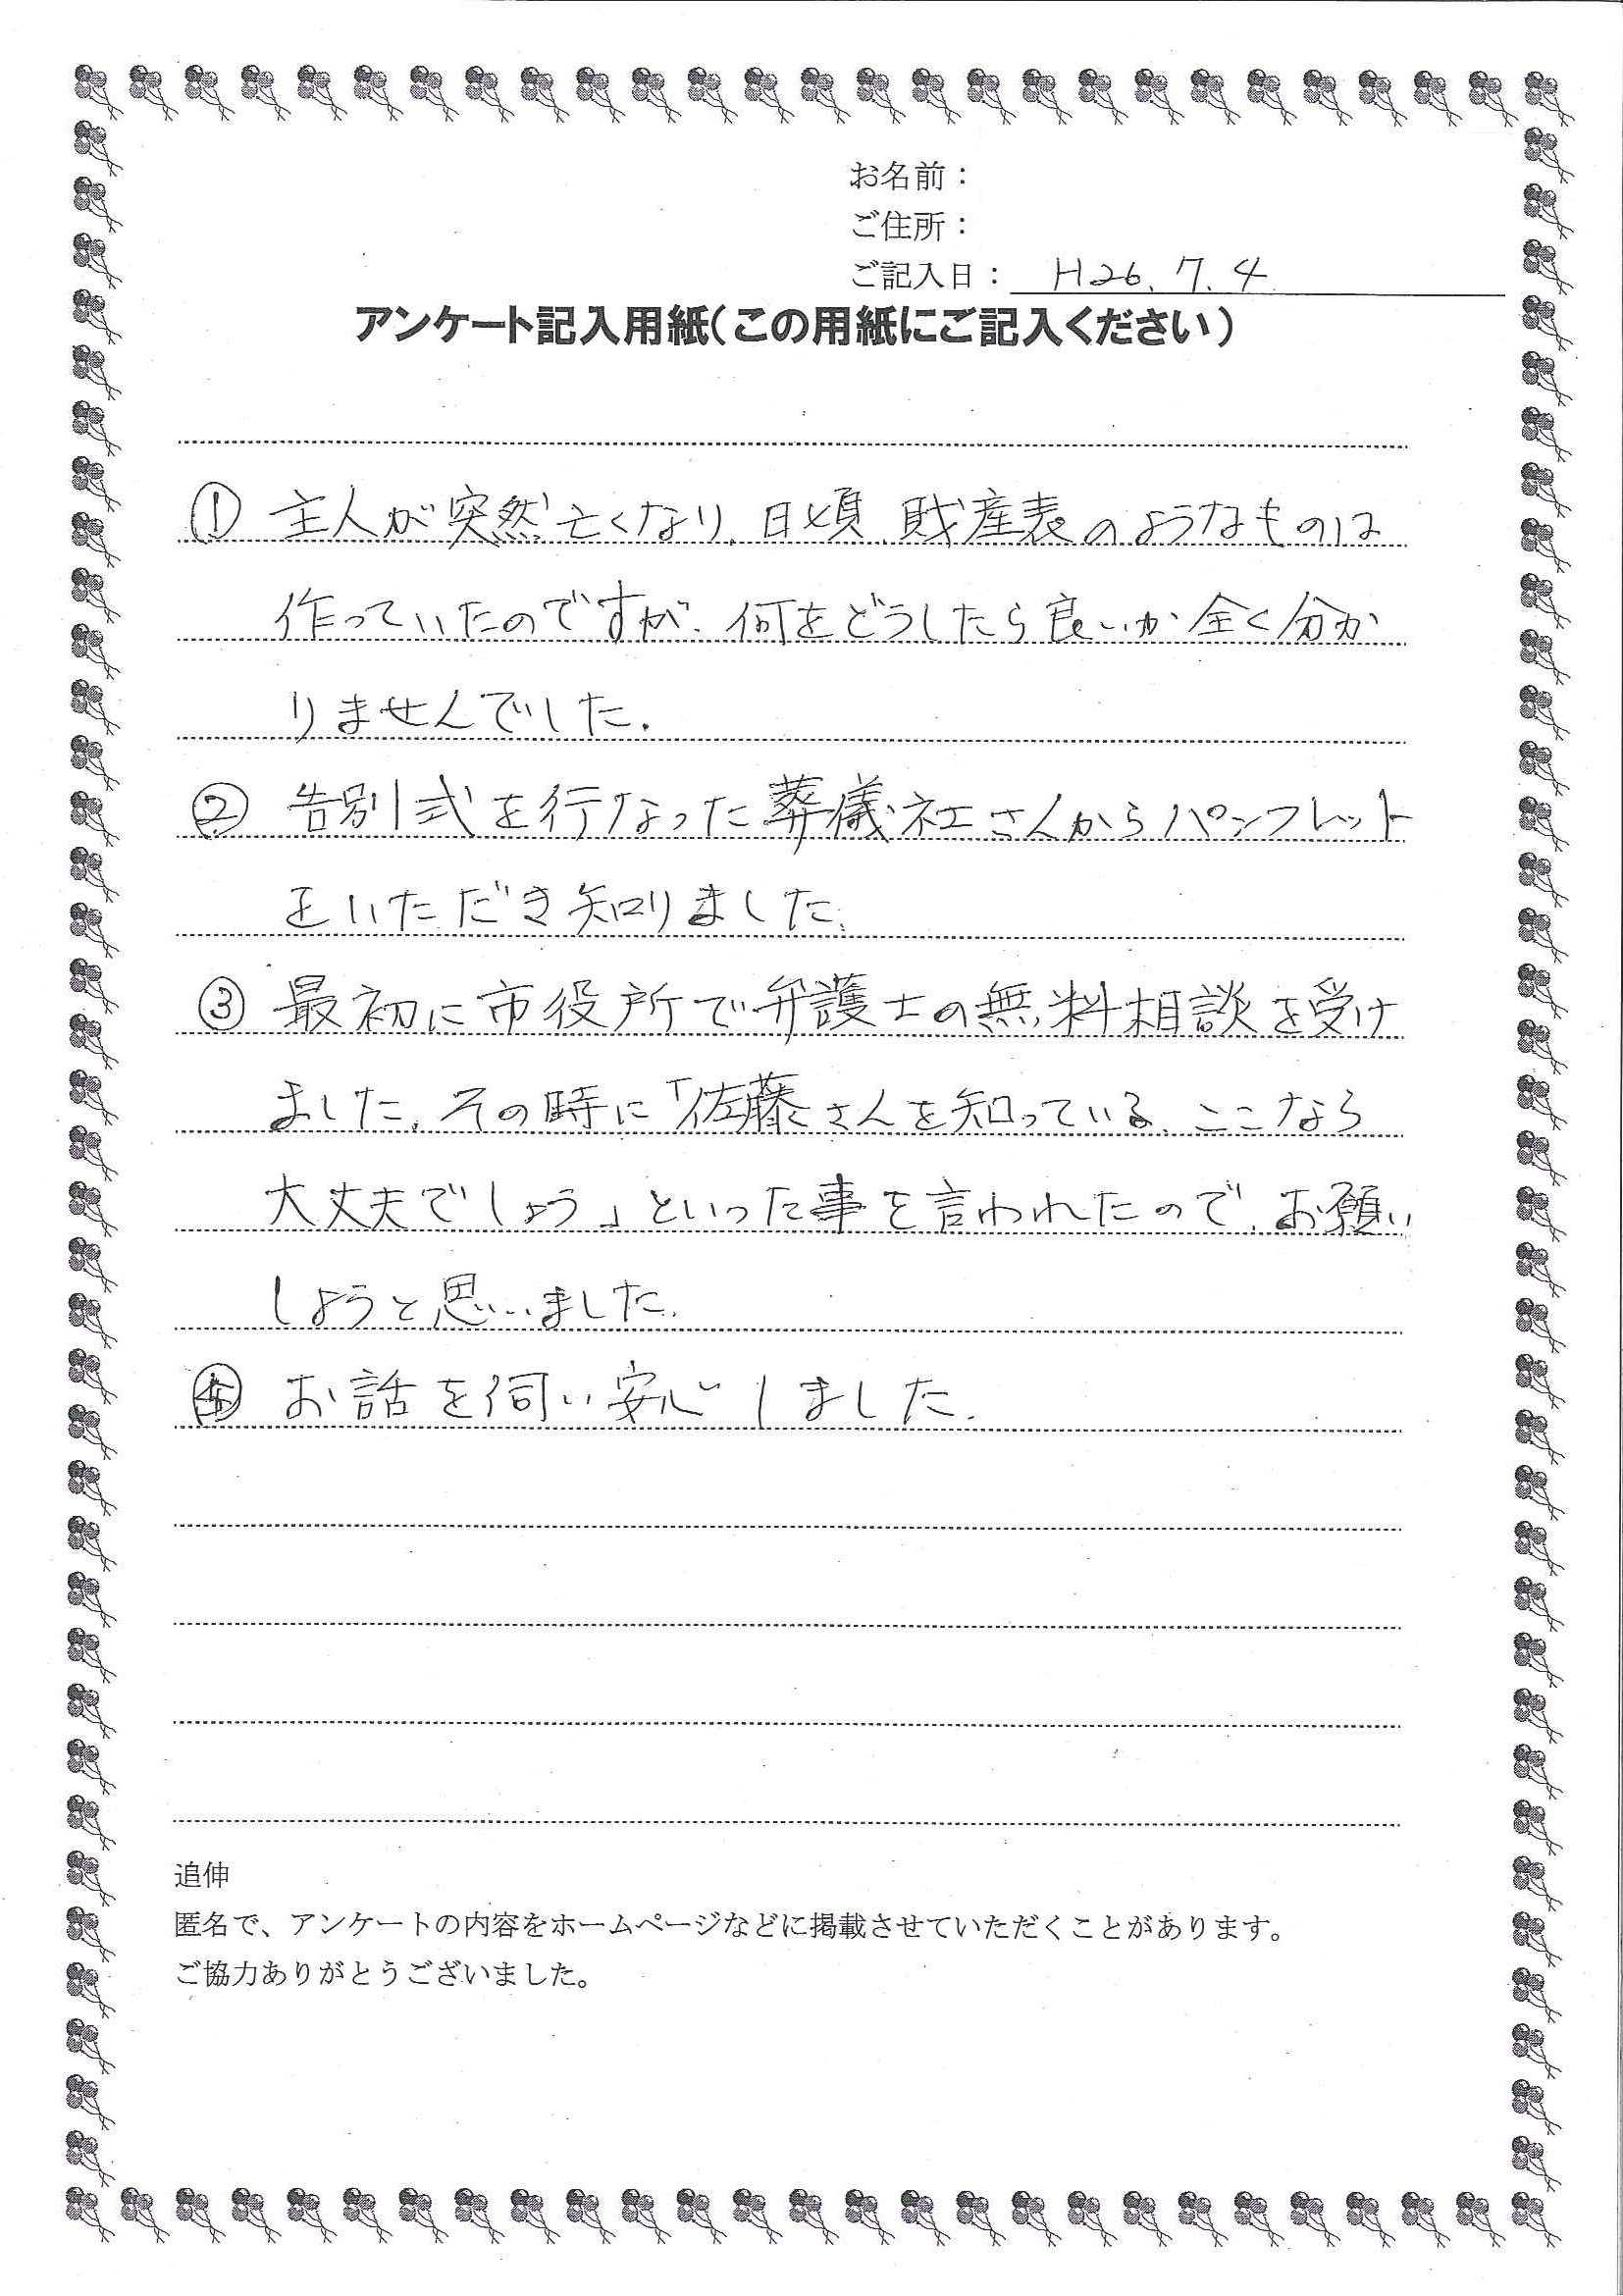 お名前：
ご住所：
ご記入日： H26.7.4
アンケート記入用紙（この用紙にご記入ください）
① 主人が突然亡くなり、日頃、財産表のようなものは
作っていたのですが、何をどうしたら良いか全く分か
りませんでした。
② 告別式を行なった葬儀社さんからパンフレット
をいただき知りました。
③ 最初に市役所で弁護士の無料相談を受け
ました。その時に「佐藤さんを知っている、ここなら
大丈夫でしょう」といった事を言われたので、お願い
しようと思いました。
お話を伺い安心しました。
追伸
匿名で、アンケートの内容をホームページなどに掲載させていただくことがあります。
ご協力ありがとうございました。